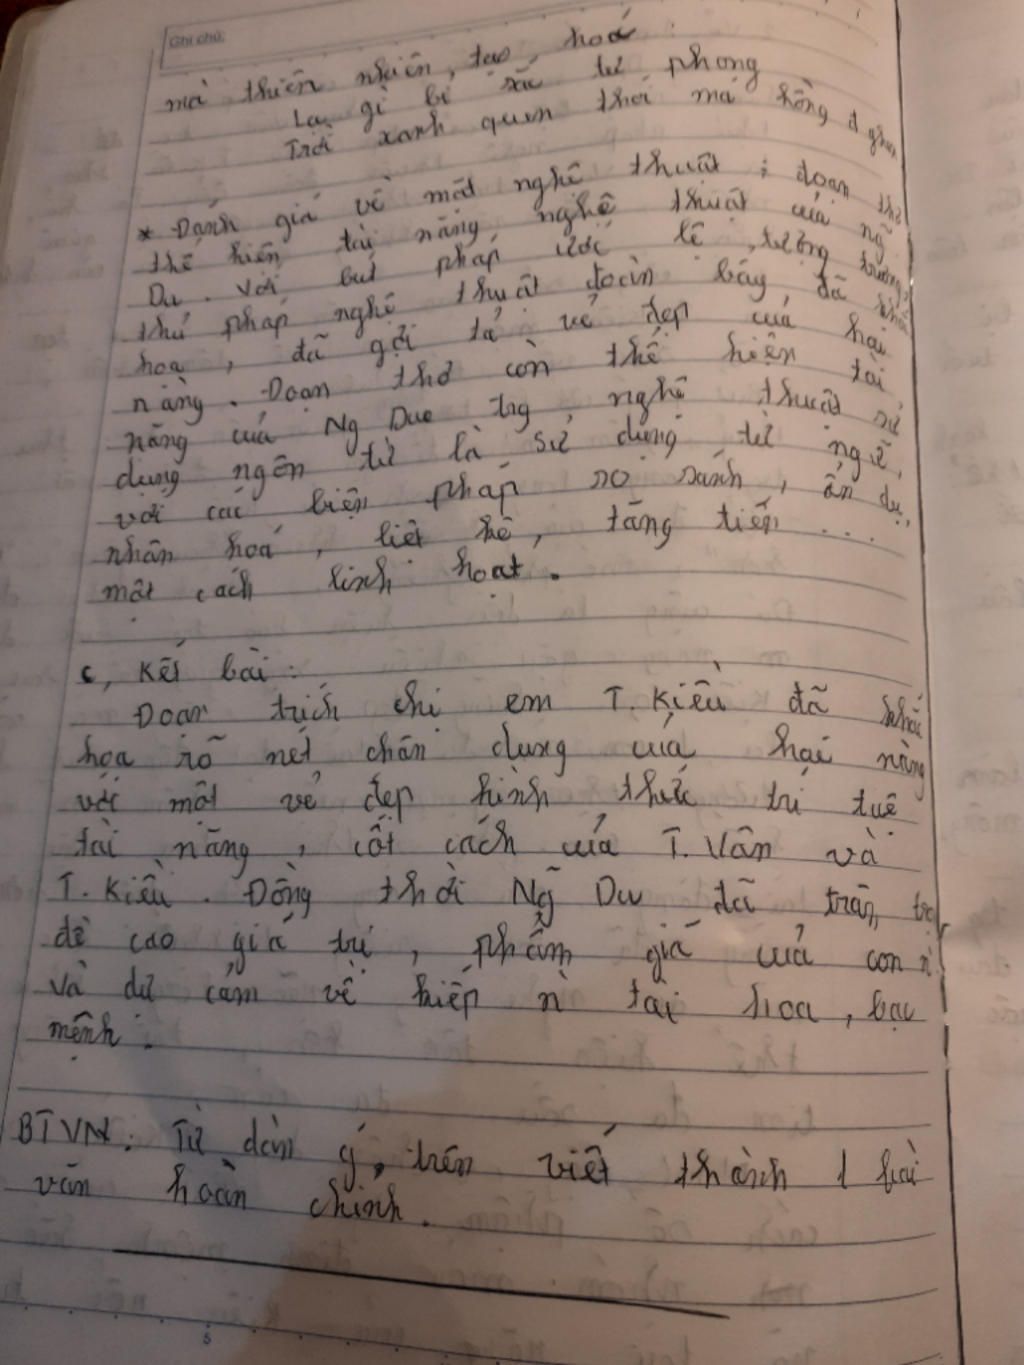 Ghi chú:
mà thiên nhiên, tạo hoá
Lạ gì bỉ sắc tư phong
Trời xanh quen thói má hồng đ ghen
* Đánh giá về mặt nghệ thuật : đoạn thơ
thể hiện tài năng nghệ thuật của Ng
Du. Với bút pháp ước lệ, tượng trưng,
thủ pháp nghệ thuật đoàn bẩy, đã khắc
hoạ, đã gợi tả vẻ đẹp của hai
nàng. Đoạn thơ còn thể hiện tài
năng của Ng Due trg nghệ thuật sử
dụng ngôn từ là sử dụng từ ngữ,
với các biện pháp so sánh, ẩn dụ,
nhân hoá, liệt kê, tăng tiến ...
một cách linh hoạt.
c, Kết bài:
Đoạn trích chị em T. Kiều đã khắc
hoạ rõ nét chân dung của hai nàng
với một vẻ đẹp hình thức trí tuệ
tài năng, cốt cách của T. Vân và
T. Kiều. Đồng thời Ng Du đã trân trọ
đề cao giá trị, phẩm giá của con n
và dự cảm về kiếp n tài hoa, bạc
mệnh.
BTVN: Từ dàn ý trên viết thành 1 bài
văn hoàn chỉnh.
5